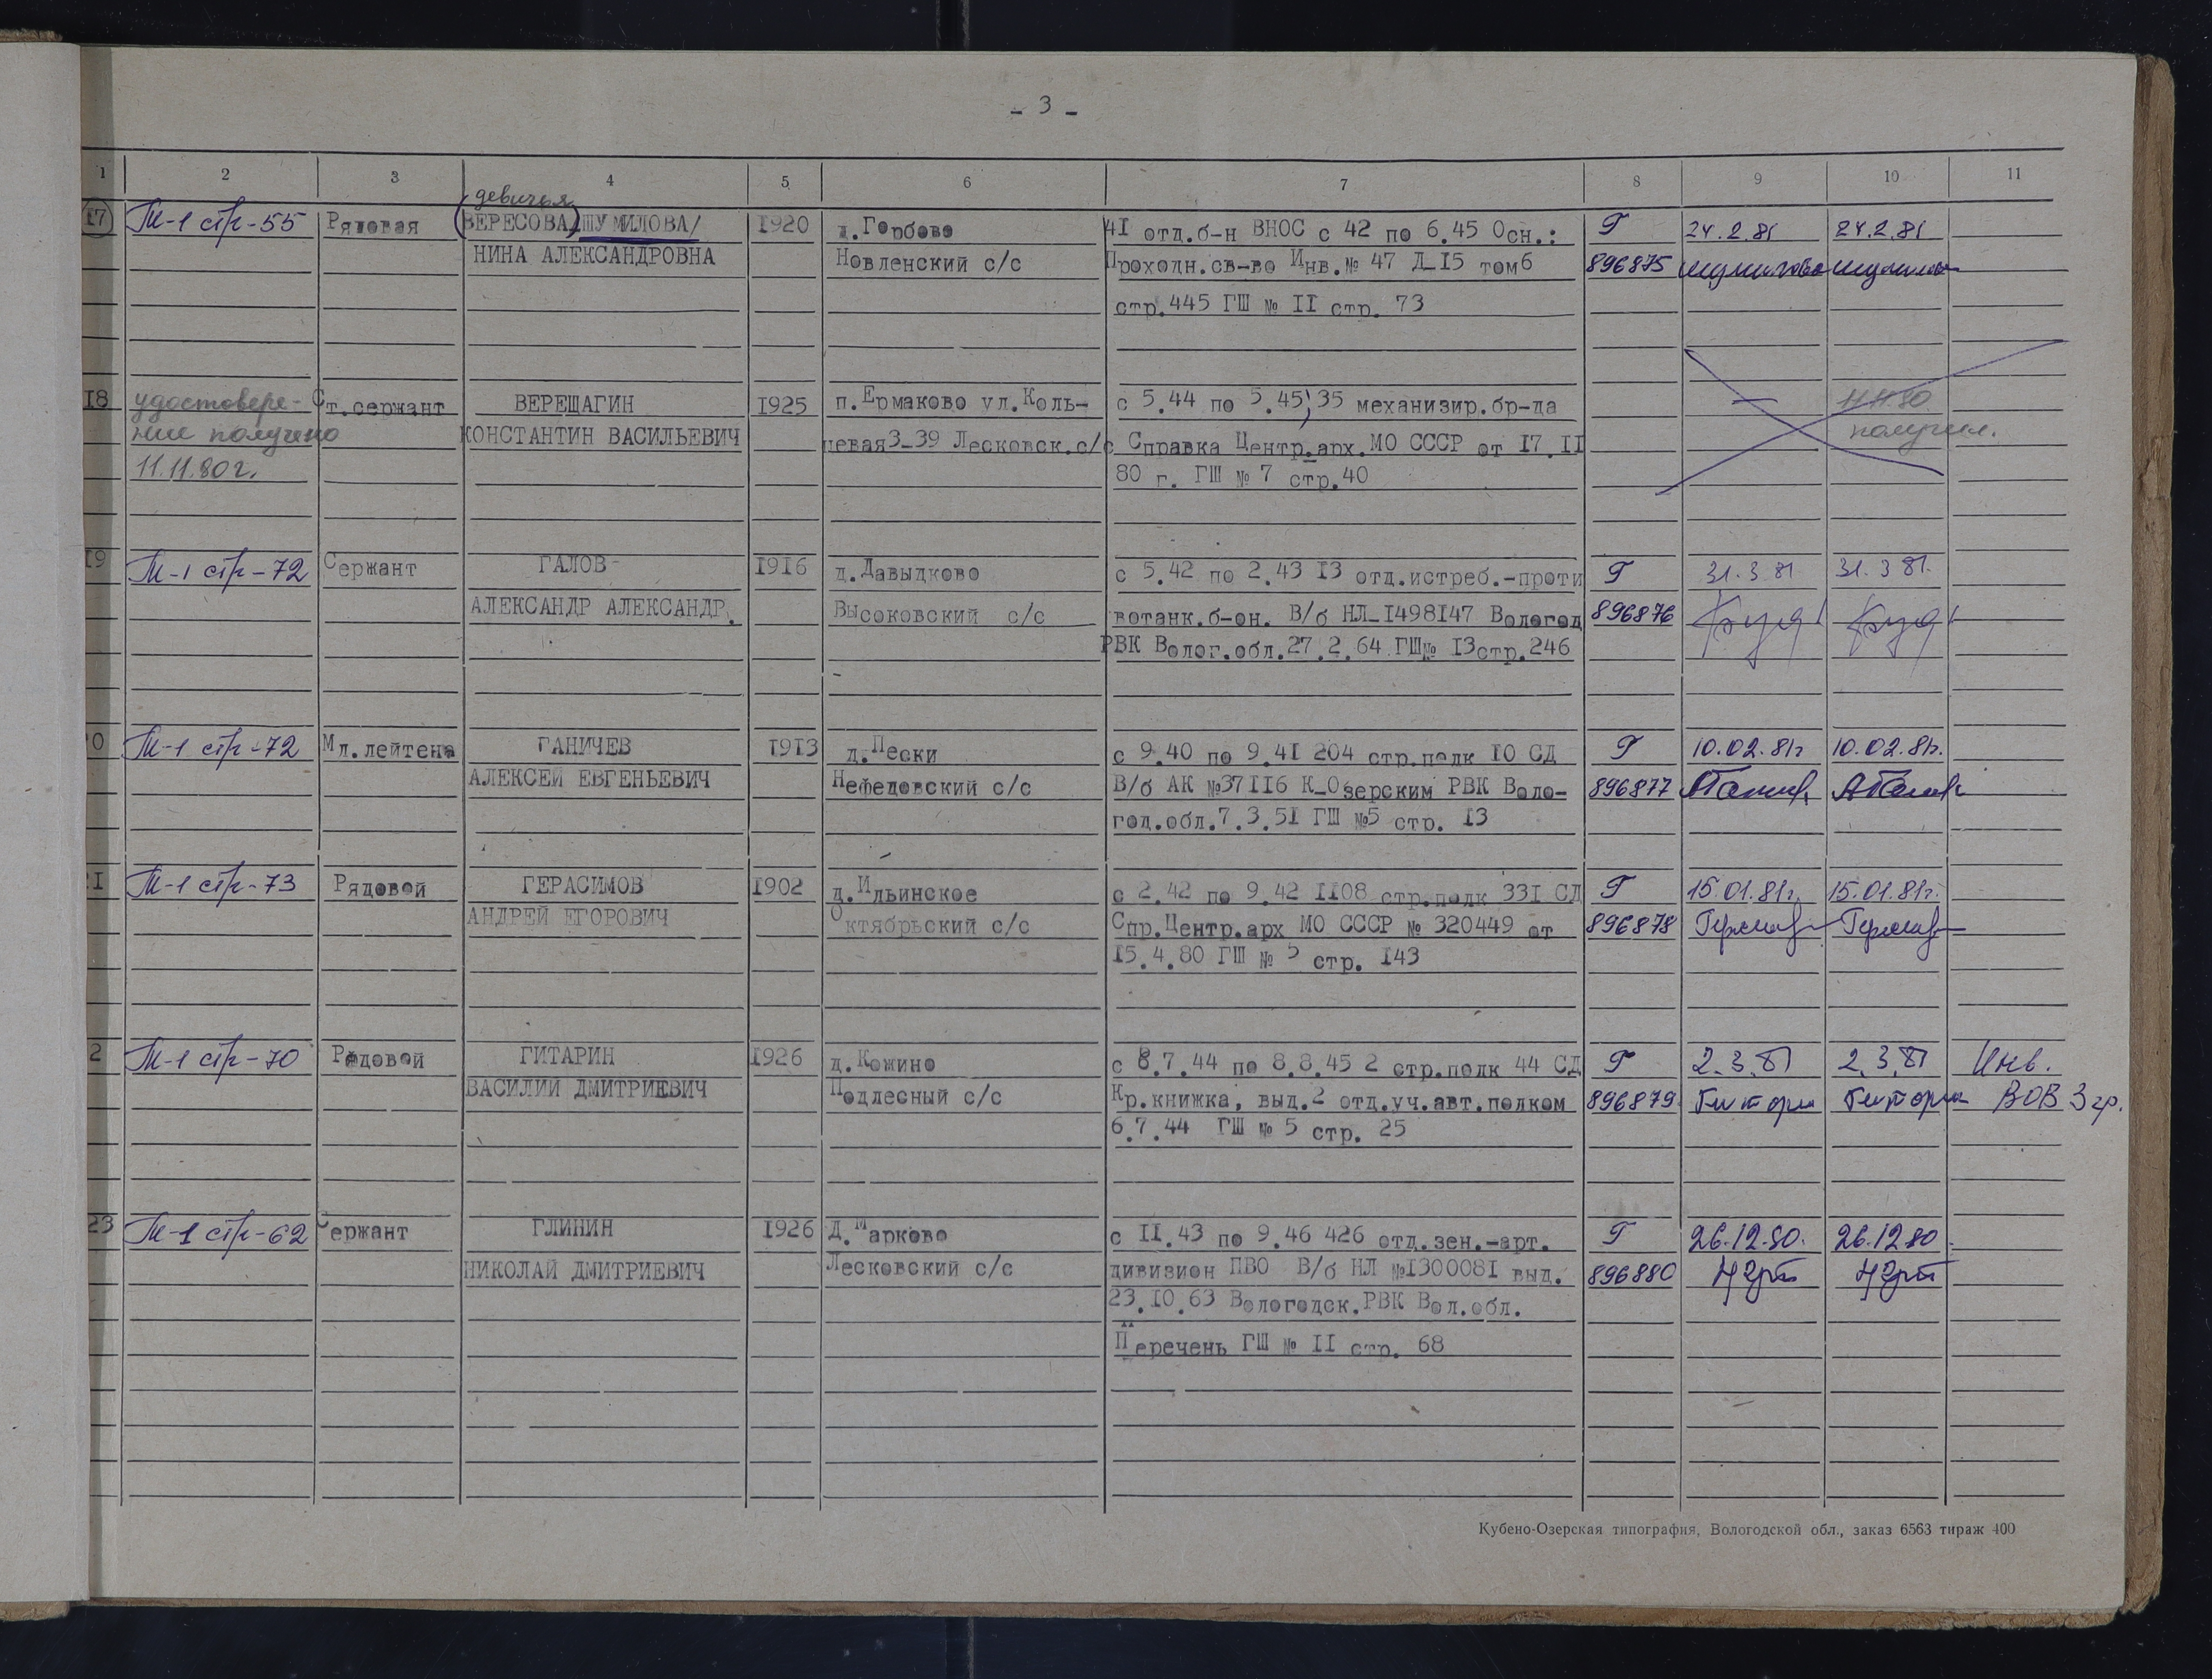 - 3 -
1 2 3 4 5 6 7 8 9 10 11
девичья
17 Т-1 стр-55 Рядовая (ВЕРЕСОВА) ШУМИЛОВА/ 1920 д.Горбово 41 отд.б-н ВНОС с 42 по 6.45 Осн.: Г 24.2.81 24.2.81
НИНА АЛЕКСАНДРОВНА Новленский с/с Проходн.св-во Инв.№ 47 Д-15 том6 896875 Шумилова
стр.445 ГШ № II стр. 73
18 удостовере- Ст.сержант ВЕРЕЩАГИН 1925 п.Ермаково ул.Коль- с 5.44 по 5.45, 35 механизир.бр-да - 11.11.80
ние получено КОНСТАНТИН ВАСИЛЬЕВИЧ цевая3-39 Лесковск.с/с Справка Центр.арх.МО СССР от 17.II получил.
11.11.80г. 80 г. ГШ № 7 стр.40
19 Т-1 стр-72 Сержант ГАЛОВ- 1916 д.Давыдково с 5.42 по 2.43 13 отд.истреб.-проти Г 31.3 81 31.3 81.
АЛЕКСАНДР АЛЕКСАНДР. Высоковский с/с вотанк.б-он. В/б НЛ-1498147 Вологод 896876
РВК Волог.обл.27.2.64 ГШ№ 13стр.246
0 Т-1 стр-72 Мл.лейтена ГАНИЧЕВ 1913 д.Пески с 9.40 по 9.41 204 стр.полк 10 СД Г 10.02.81г 10.02.81г.
АЛЕКСЕЙ ЕВГЕНЬЕВИЧ Нефедовский с/с В/б АК №37116 К-Озерским РВК Воло- 896877
год.обл.7.3.51 ГШ №5 стр. 13
I Т-1 стр-73 Рядовой ГЕРАСИМОВ 1902 д.Ильинское с 2.42 по 9.42 1108 стр.полк 331 СД Г 15.01.81г. 15.01.81г.
АНДРЕЙ ЕГОРОВИЧ Октябрьский с/с Спр.Центр.арх МО СССР № 320449 от 896878
15.4.80 ГШ № 5 стр. 143
2 Т-1 стр-70 Рядовой ГИТАРИН 1926 д.Кожино с 8.7.44 по 8.8.45 2 стр.полк 44 СД Г 2.3.81 2.3.81 Инв.
ВАСИЛИЙ ДМИТРИЕВИЧ Подлесный с/с Кр.книжка, выд.2 отд.уч.авт.полком 896879 ВОВ 3 гр.
6.7.44 ГШ № 5 стр. 25
23 Т-1 стр-62 Сержант ГЛИНИН 1926 Д.Марково с II.43 по 9.46 426 отд.зен.-арт. Г 26.12.80. 26.12 80.
НИКОЛАЙ ДМИТРИЕВИЧ Лесковский с/с дивизион ПВО В/б НЛ №1300081 выд. 896880
23.10.63 Вологодск.РВК Вол.обл.
Перечень ГШ № II стр. 68
Кубено-Озерская типография, Вологодской обл., заказ 6563 тираж 400